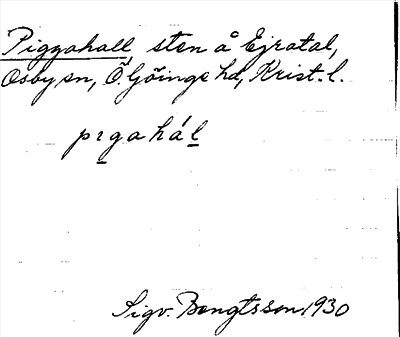 Piggahall sten å Ejratal,
Osby sn, Ö. Göinge hd, Krist. l.
pıgahál
Sigv. Bengtsson 1930